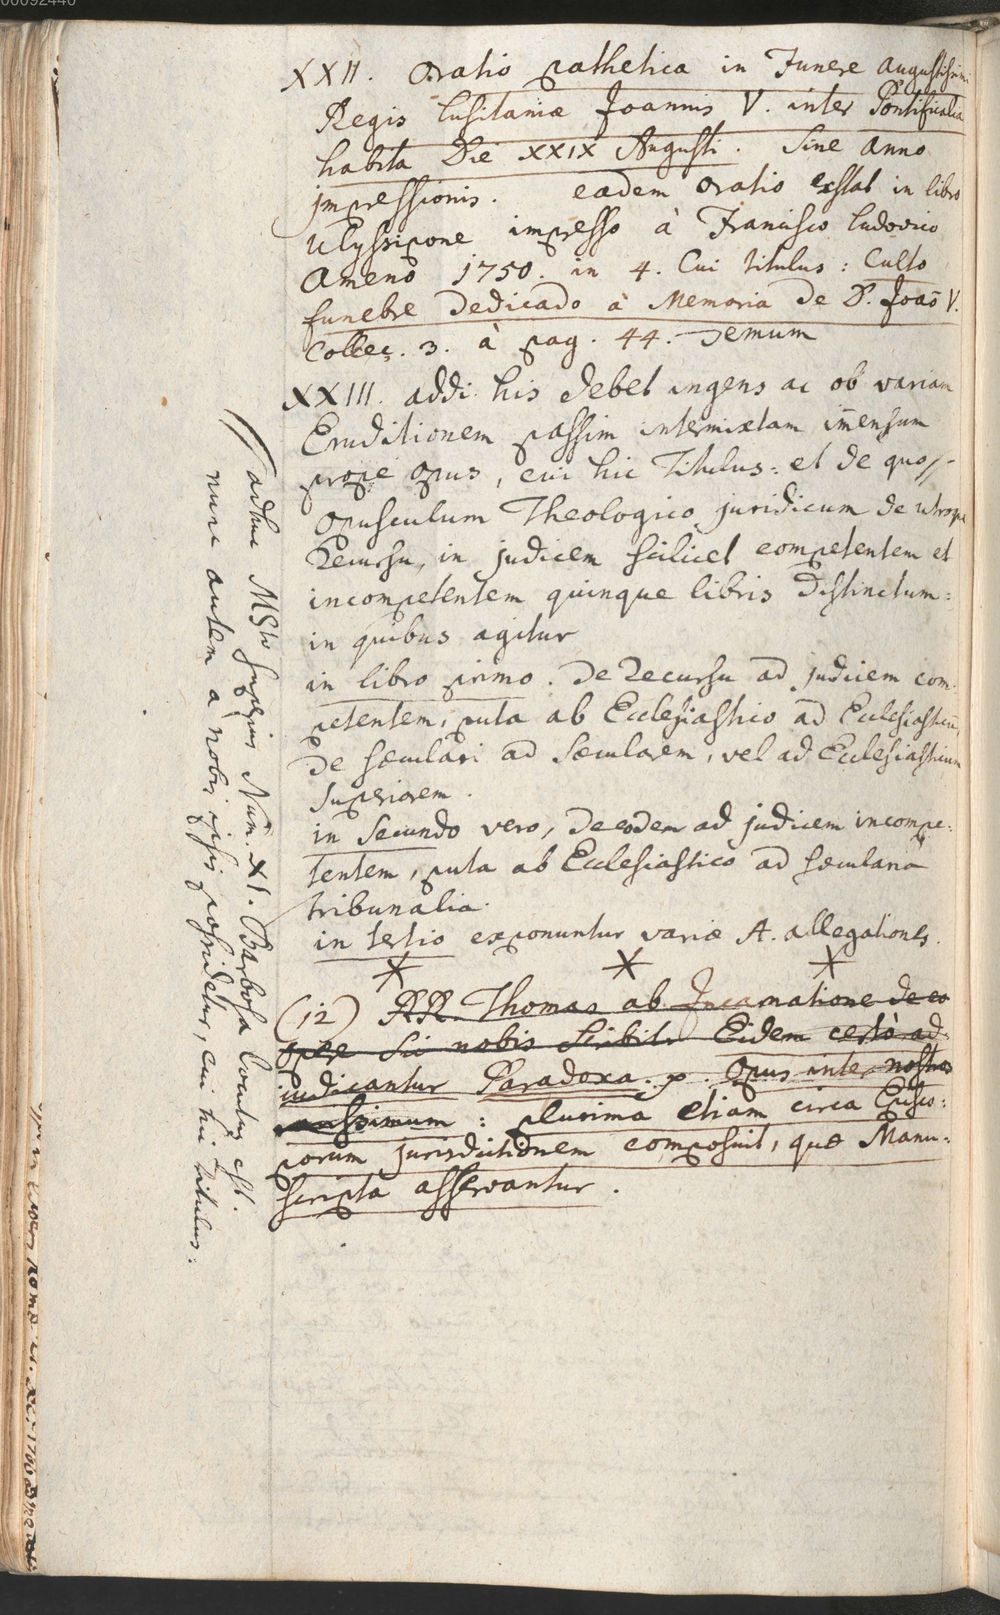 XXII. Oratio pathetica in Funere Augustissimi
Regis Lusitaniæ Joannis V. inter Pontificalia
habita Die XXIX Augusti. Sine anno
impressionis. eadem Oratio exstat in libro
Ulyssipone impresso à Francisco Ludovico
Ameno 1750. in 4. Cui titulus: Culto
funebre Dedicado à Memoria de D. Joaõ V.
Collec. 3. à pag. 44. Demum
XXIII. addi his debet ingens ac ob variam
Eruditionem passim intermixtam im̄ensum
prope opus, cui hic Titulus: et de quo
Opusculum Theologico juridicum de utroque
Recursu, in judicem scilicet competentem et
incompetentem quinque libris Distinctum:
in quibus agitur
in libro primo. De Recursu ad judicem com-
petentem, puta ab Ecclesiastico ad Ecclesiasticũ,
De sæculari ad sæcularem, vel ad Ecclesiasticum
Superiorem.
in Secundo vero, De eodem ad judicem incompe:
tentem, puta ab Ecclesiastico ad sæcularia
tribunalia.
in tertio exponuntur variæ A. allegationes.
(12) AR. Thomas ab Incarnatione de eo
opere sic nobis scribit. Eidem certò ad-
iudicantur Paradoxa. p. Opus inter nostras
: plurima etiam circa Episco:
porum jurisdictionem composuit, quæ Manu-
scripta asservantur.
adhuc MSto superius Num. XI. Barbosa locutus est.
nunc autem a nobis ipsis possidetur, cui hic titulus: